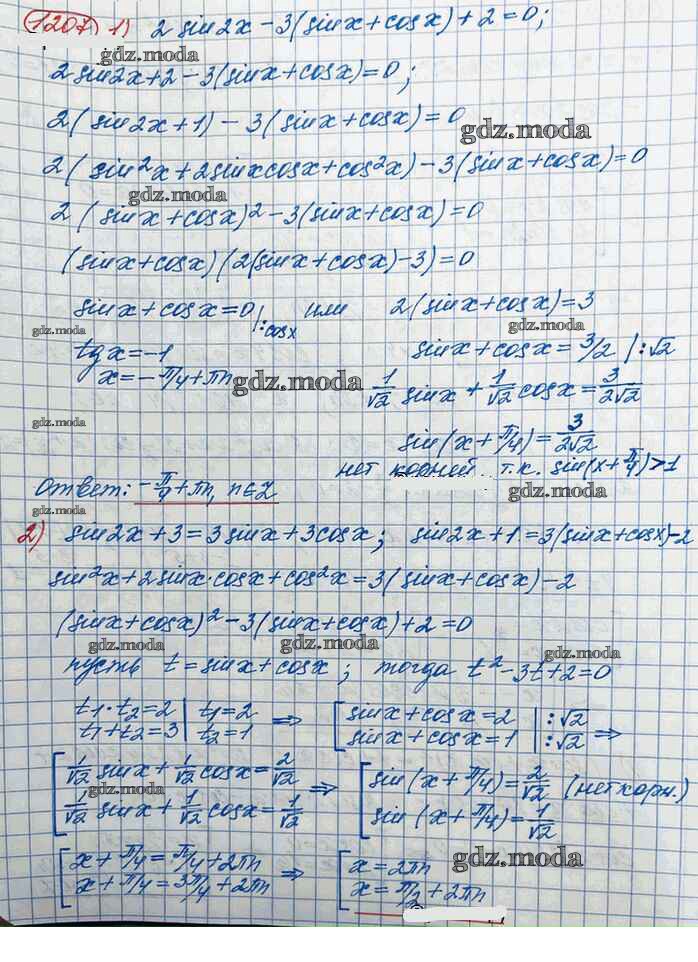 1207. 1) 2 sin2x - 3(sinx + cosx) + 2 = 0;
gdz.moda
2 sin2x + 2 - 3(sinx + cosx) = 0;
2(sin2x + 1) - 3(sinx + cosx) = 0
gdz.moda
2(sin²x + 2sinxcosx + cos²x) - 3(sinx + cosx) = 0
gdz.moda
2(sinx + cosx)² - 3(sinx + cosx) = 0
(sinx + cosx)(2(sinx + cosx) - 3) = 0
sinx + cosx = 0 |:cosx или 2(sinx + cosx) = 3
gdz.moda gdz.moda
tgx = -1 sinx + cosx = 3/2 |:√2
x = -π/4 + πn gdz.moda 1/√2 sinx + 1/√2 cosx = 3/2√2
gdz.moda sin(x + π/4) = 3/2√2
нет корней т.к. sin(x + π/4) > 1
Ответ: -π/4 + πn, n∈Z
2) sin2x + 3 = 3sinx + 3cosx; sin2x + 1 = 3(sinx + cosx) - 2
sin²x + 2sinx·cosx + cos²x = 3(sinx + cosx) - 2
(sinx + cosx)² - 3(sinx + cosx) + 2 = 0
gdz.moda gdz.moda gdz.moda
пусть t = sinx + cosx; тогда t² - 3t + 2 = 0
t₁·t₂ = 2 | t₁ = 2 ⇒ [ sinx + cosx = 2 |:√2
t₁ + t₂ = 3 | t₂ = 1 sinx + cosx = 1 |:√2 ⇒
gdz.moda
[ 1/√2 sinx + 1/√2 cosx = 2/√2 ⇒ [ sin(x + π/4) = 2/√2 (нет корн.)
gdz.moda
1/√2 sinx + 1/√2 cosx = 1/√2 sin(x + π/4) = 1/√2
gdz.moda
[ x + π/4 = π/4 + 2πn ⇒ [ x = 2πn
gdz.moda
x + π/4 = 3π/4 + 2πn x = π/2 + 2πn